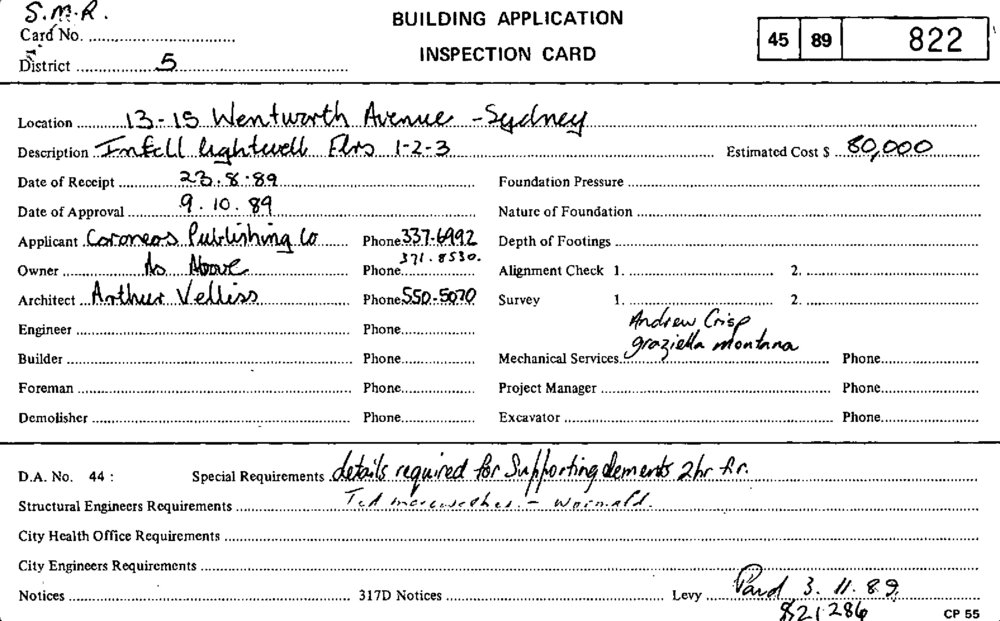 S.M.R.
BUILDING APPLICATION
Card No.
45 89 822
INSPECTION CARD
District 5
Location 13-15 Wentworth Avenue - Sydney
Description Infill lightwell Flrs 1-2-3 Estimated Cost $ 80,000
Date of Receipt 23.8.89 Foundation Pressure
Date of Approval 9.10.89 Nature of Foundation
Applicant Coroneos Publishing Co Phone 337-6992 Depth of Footings
371.8530.
Owner As Above Phone Alignment Check 1. 2.
Architect Arthur Velliss Phone 550-5070 Survey 1. 2.
Andrew Crisp
Engineer Phone
graziella montana
Builder Phone Mechanical Services Phone
Foreman Phone Project Manager Phone
Demolisher Phone Excavator Phone
D.A. No. 44 : Special Requirements details required for Supporting elements 2hr f.r.
Structural Engineers Requirements Ted - Wormald.
City Health Office Requirements
City Engineers Requirements
Notices 317D Notices Levy Paid 3.11.89.
821286
CP 55